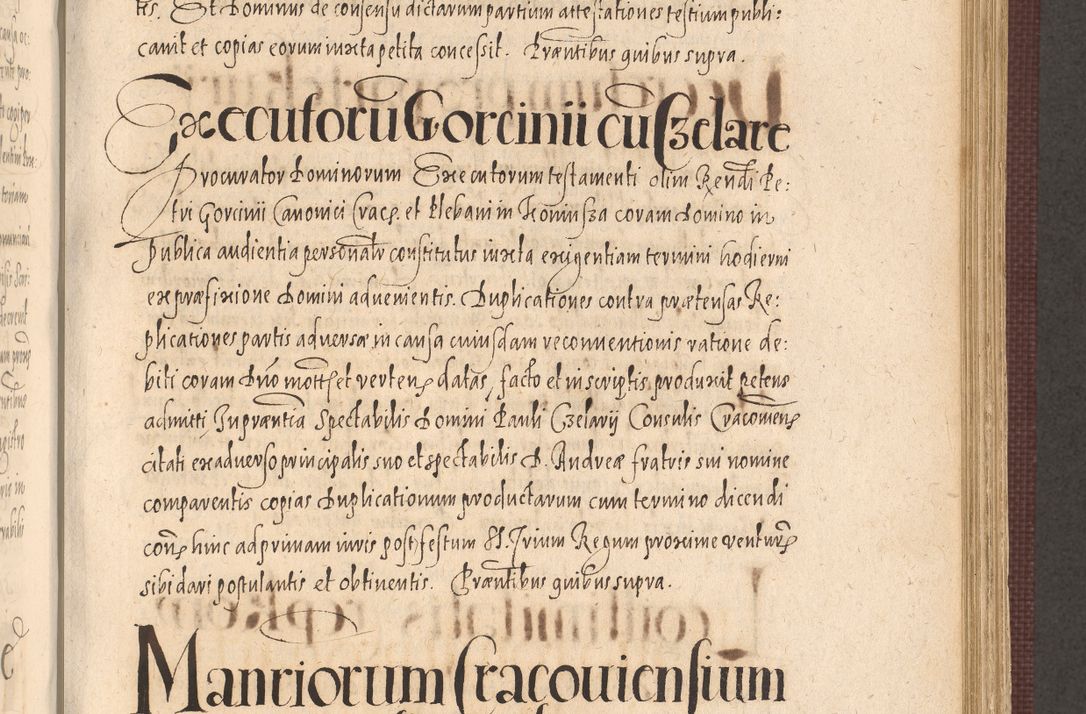 tis. Et Dominus de consensu dictarum partium attestationes testium publi:
cavit et copias eorum iuxta petita concessit. Præntibus quibus supra.
Executorũ Gorcinii cũ Czelare
Procurator Dominorum Executorum testamenti olim Rendi Pe:
tri Gorcinii Canonici Crac. et Plebani in Koniusza coram Domino in
Publica audientia personalr constitutus iuxta exigentiam termini hodierni
ex præfixione Domini advenientis. Duplicationes contra prætensas Re:
plicationes partis adversæ in causa cuiusdam reconventionis ratione de:
biti coram Dño mott. et verten. datas, facto et in scriptis produxit petens
admitti, In præntia Spectabilis Domini Pauli Czelarij Consulis Cracovien.
citati ex adverso principalis suo et spectabilis D. Andreæ fratris sui nomine
comparentis copias Duplicationum productarum cum termino dicendi
con. hinc ad primam iuris post festum SS. Trium Regum proxime ventur.
sibi dari postulantis et obtinentis. Præntibus quibus supra.
Mansiorum Cracouiensium